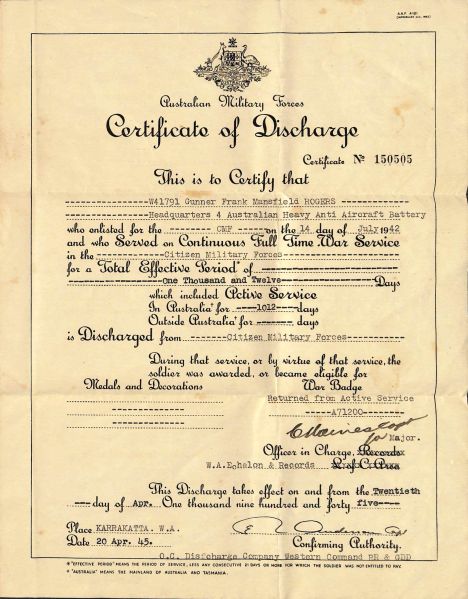 A.A.F. A101
Australian Military Forces
Certificate of Discharge
Certificate No 150505
This is to Certify that
W41791 Gunner Frank Mansfield ROGERS
Headquarters 4 Australian Heavy Anti Aircraft Battery
who enlisted for the CMF on the 14 day of July 1942
and who Served on Continuous Full Time War Service
in the Citizen Military Forces
for a Total Effective Period* of
One Thousand and Twelve Days
which included Active Service
In Australia† for 1012 days
Outside Australia† for days
is Discharged from Citizen Military Forces
During that service, or by virtue of that service, the
soldier was awarded, or became eligible for
Medals and Decorations War Badge
Returned from Active Service
A71200
for Major.
Officer in Charge, Records
W.A. Echelon & Records L. of C. Area
This Discharge takes effect on and from the Twentieth
day of Apr. One thousand nine hundred and forty five
Place KARRAKATTA. W.A.
Date 20 Apr. 45. Confirming Authority.
O.C. Discharge Company Western Command RR & GDD
* "EFFECTIVE PERIOD" MEANS THE PERIOD OF SERVICE, LESS ANY CONSECUTIVE 21 DAYS OR MORE FOR WHICH THE SOLDIER WAS NOT ENTITLED TO PAY.
† "AUSTRALIA" MEANS THE MAINLAND OF AUSTRALIA AND TASMANIA.